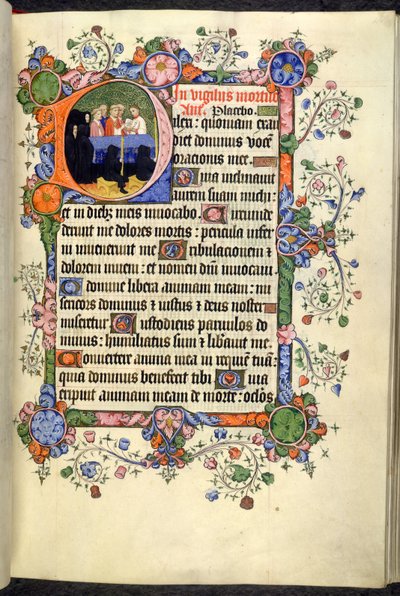 In vigiliis mortuo
Ant. Placebo.
ilexi: quoniam exau
diet dominus vocem
orationis mee.
Quia inclinavit
aurem suam michi
et in diebz meis invocabo. Circumde
derunt me dolores mortis: pericula infer
ni invenerunt me Tribulationem et
dolorem inveni: et nomen dni invocavi.
O domine libera animam meam: mi
sericors dominus et iustus et deus noster
miseretur Custodiens parvulos do
minus: humiliatus sum et liberavit me.
Convertere anima mea in requiem tuam:
quia dominus benefecit tibi Quia
eripuit animam meam de morte: oclos